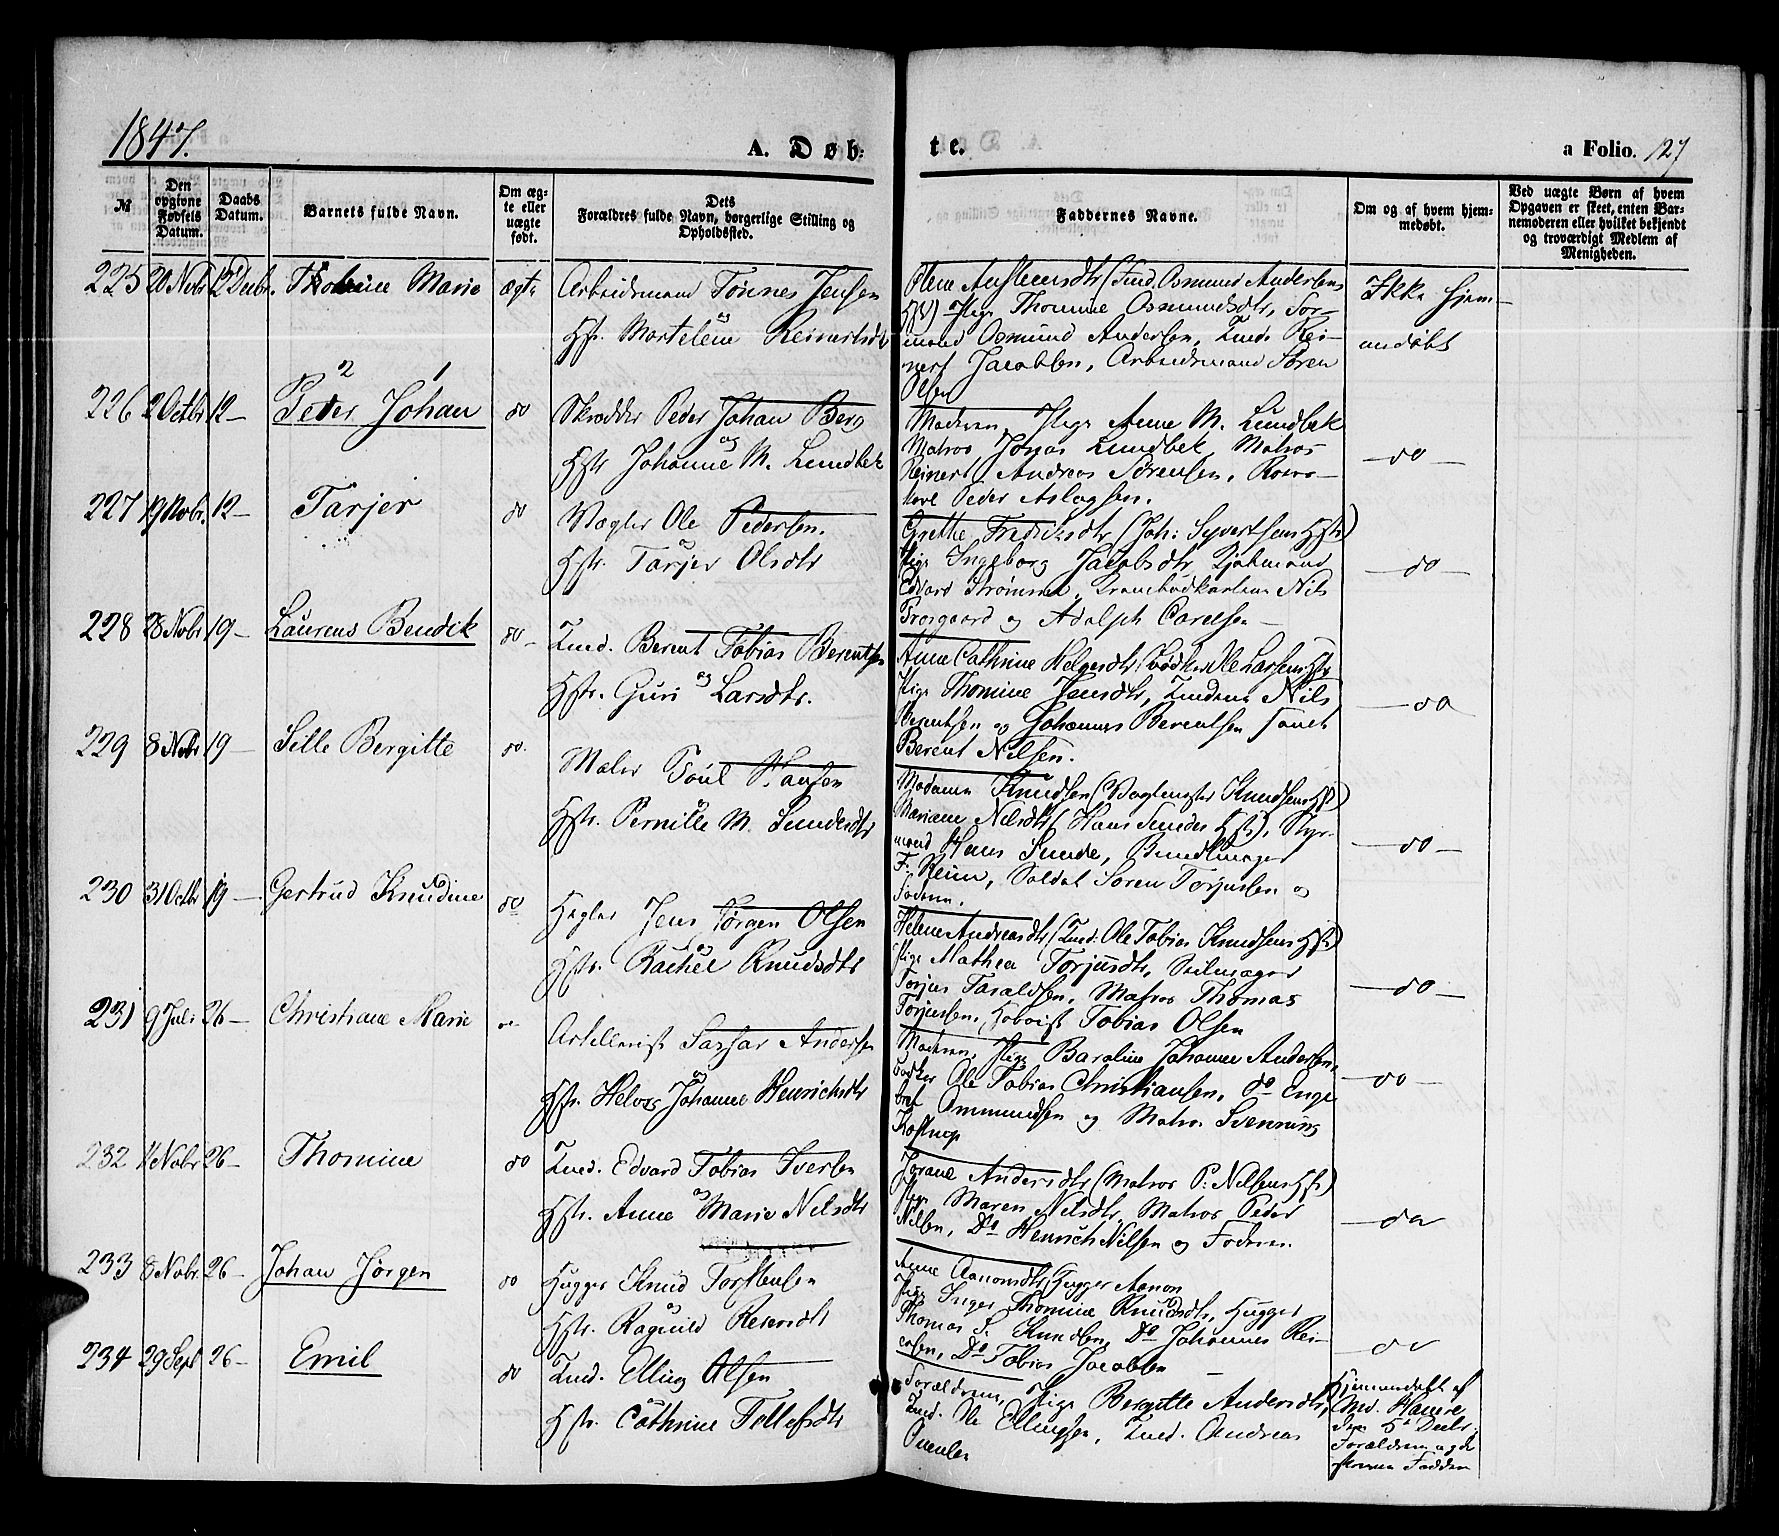 1847.
A. Døb-
te.
a Folio. 127
№
Den opgivne Fødsels Datum.
Daabs Datum.
Barnets fulde Navn.
Om ægte eller uægte født.
Dets Forældres fulde Navn, borgerlige Stilling og Opholdssted.
Faddernes Navne.
Om og af hvem hjemmedøbt.
Ved uægte Børn af hvem Opgaven er skeet, enten Barnemoderen eller hvilket bekjendt og troværdigt Medlem af Menigheden.
225 20 Nobr 12 Decbr. Thomine Marie ægte Arbeidsmand Tønnes Jensen
og
Hst. Mortelene Reinertsdt
Olene Ansteensdtr (Tmd. Osmund Andersens
Hst) Pige Thomine Osmundsdtr, For-
mand Osmund Andersen, Tmd. Rei-
nert Jacobsen, Arbeidsmand Søren
Olsen
Ikke hjem-
medøbt
226 2 Octbr 12 -
2 1
Peder Johan do Skrædder Peder Johan Berg
og
Hstr Johanne M. Lundbek
Moderen, Pige Anne M. Lundbek
Matros Jonas Lundbek, Matros
Reinert Andreas Sørensen,
Peder Aslagsen.
- do -
227 19 Nobr. 12 - Tarjer do Vægter Ole Pedersen.
og
Hstr. Tarjer Olsdtr
Grethe Fredriksdtr (Joh: Syvertsens Hst)
Pige Ingeborg Jacobsdtr,
Edvard Strømme, Nils
Brosgaard og Adolph Carelsen -
- do -
228 28 Nobr 19 - Laurens Bendik do - Tmd. Berent Tobias Berentsen
og
Hstr. Guri Larsdtr.
Anne Cathrine Helgesdtr (Bødker Ole Larsens Hst)
Pige Thomine Jensdtr, Tmdene Nils
Berentsen og Johannes Berentsen samt
Berent Nilsen.
- do
229 8 Nobr 19 - Sille Bergitte do. Maler Poul Hansen
og
Hstr. Pernille M. Sundesdtr
Madame Knudsen (Vagtmester Knudsens Hst)
Mariane Nilsdtr (Hans Sundes Hst), Styr-
mand Hans Sunde,
F. Reim, Soldat Søren Torjussen og
Faderen.
- do -
230 31 Octbr 19 - Gertrud Knudine do Hegler Jens Jørgen Olsen
og
Hstr. Rachel Knudsdtr
Helene Andreasdtr (Tmd: Ole Tobias Knudsens Hst)
Pige Mathea Torjusdtr, Seilmager
Torjus Taraldsen, Matros Thomas
Torjussen, Tobias Olsen
- do -
231 9 Juli 26 - Christiane Marie Artillerist Andersen
og
Hst. Johanne Henrichsdtr
Moderen, Pige Baroline Johanne Andersen,
Ole Tobias Christiansen, Do Enge-
bret Ommundsen og Matros Svenning
Kostrup
- do -
232 Nobr 26 - Thomine do Tmd. Edvard Tobias Iversen
og
Hstr. Anne Marie Nilsdtr
Jorane Andersdtr (Matros P. Nilsens Hst)
Pige Maren Nilsdtr, Matros Peder
Nilsen, Do Henrich Nilsen og Faderen.
- do
233 8 Nobr. 26 - Johan Jørgen do Hugger Knud Torstensen
og
Hstr. Ragnild Reiersdtr
Anne Aanonsdtr (Hugger Aanon
Pige Inger Thomine Knudsdtr, Hugger
Thomas S. Knudsen, Do Johannes Rei-
ersen, Do Tobias Jacobsen -
- do
234 29 Sept 26 - Emil do Tmd. Elling Olsen
og
Hstr. Cathrine Tellefsdtr
Forældrene, Pige Bergitte Andersdtr,
Tmd. Ole Ellingsen, Tmd. Andreas
Hjemmedøbt af
Md. Haure
Forældrene og de
samme Faddere